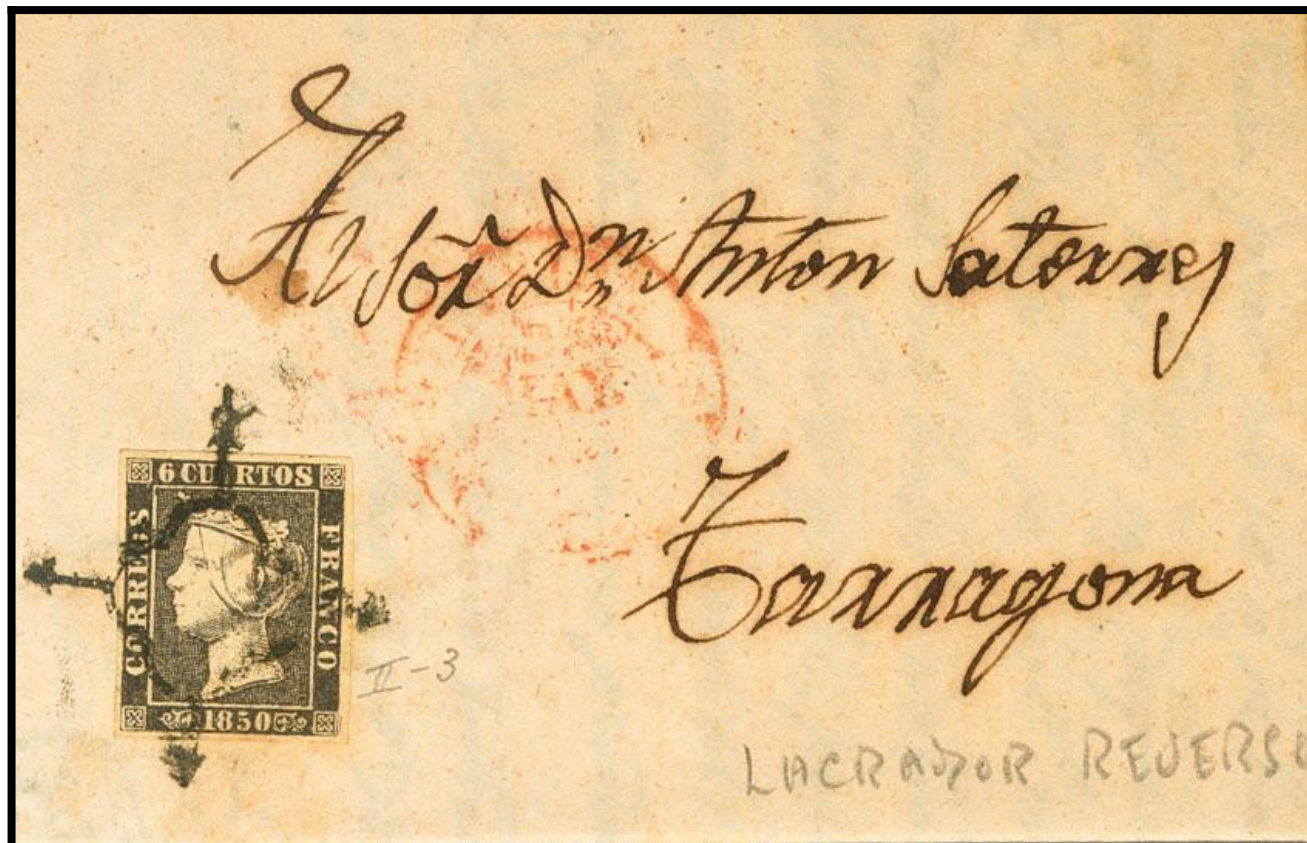 Al Señr Dn Anton Saterrey
Tarragona
6 CUARTOS
CORREOS
FRANCO
1850
II-3
LACRADOR REVERSO